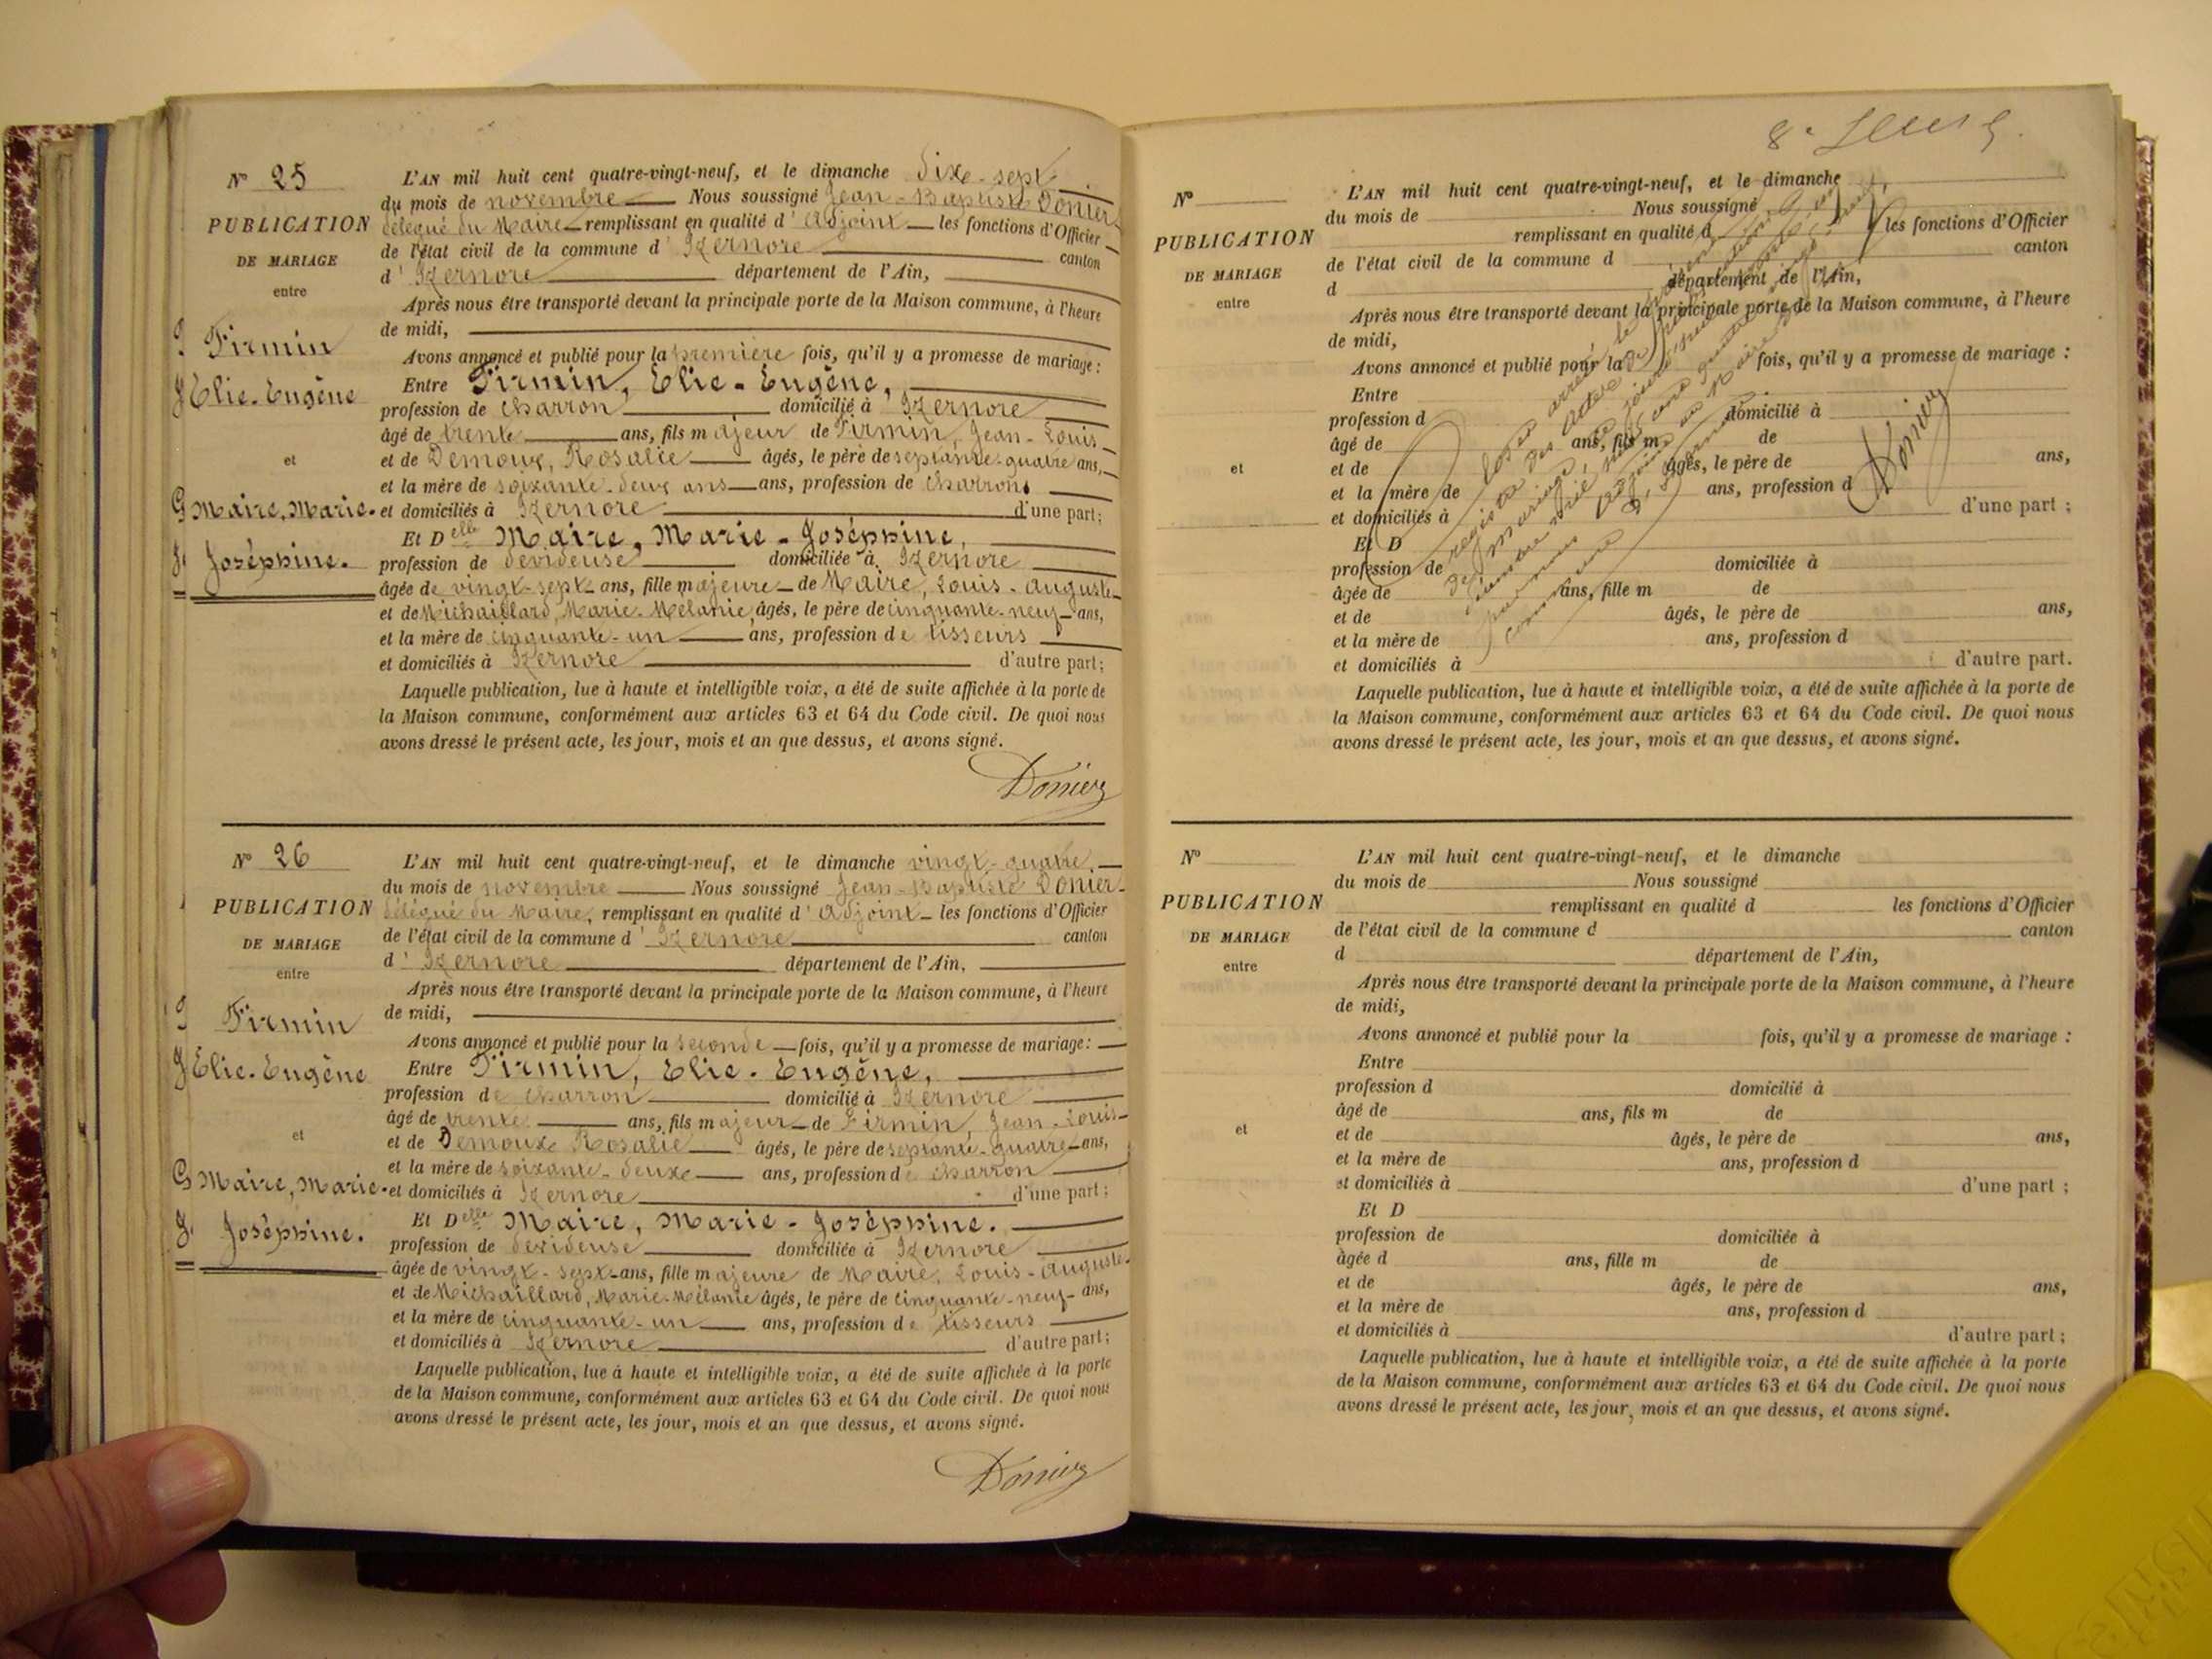 N° 25
PUBLICATION
DE MARIAGE
entre
Firmin
Elie-Eugène
et
Maire, Marie-
Joséphine.
L'AN mil huit cent quatre-vingt-neuf, et le dimanche dixe-sept
du mois de novembre Nous soussigné Jean-Baptiste Donier
délégué du Maire remplissant en qualité d'adjoint les fonctions d'Officier
de l'état civil de la commune d'Izernore canton
d'Izernore département de l'Ain,
Après nous être transporté devant la principale porte de la Maison commune, à l'heure
de midi,
Avons annoncé et publié pour la première fois, qu'il y a promesse de mariage :
Entre Firmin, Elie-Eugène,
profession de charron domicilié à Izernore
âgé de trente ans, fils majeur de Firmin, Jean-Louis
et de Demoux, Rosalie âgés, le père de septante-quatre ans,
et la mère de soixante-deux ans ans, profession de charrons
et domiciliés à Izernore d'une part ;
Et Delle Maire, Marie-Joséphine,
profession de dévideuse domiciliée à Izernore
âgée de vingt-sept ans, fille majeure de Maire, Louis-Auguste
et de Michaillard, Marie-Mélanie, âgés, le père de cinquante-neuf ans,
et la mère de cinquante-un ans, profession de tisseurs
et domiciliés à Izernore d'autre part ;
Laquelle publication, lue à haute et intelligible voix, a été de suite affichée à la porte de
la Maison commune, conformément aux articles 63 et 64 du Code civil. De quoi nous
avons dressé le présent acte, les jour, mois et an que dessus, et avons signé.
Donier
N° 26
PUBLICATION
DE MARIAGE
entre
Firmin
Elie-Eugène
et
Maire, Marie-
Joséphine.
L'AN mil huit cent quatre-vingt-neuf, et le dimanche vingt-quatre
du mois de novembre Nous soussigné Jean-Baptiste Donier
délégué du Maire, remplissant en qualité d'adjoint les fonctions d'Officier
de l'état civil de la commune d'Izernore canton
d'Izernore département de l'Ain,
Après nous être transporté devant la principale porte de la Maison commune, à l'heure
de midi,
Avons annoncé et publié pour la seconde fois, qu'il y a promesse de mariage :
Entre Firmin, Elie-Eugène,
profession de charron domicilié à Izernore
âgé de trente ans, fils majeur de Firmin, Jean-Louis
et de Demoux Rosalie âgés, le père de septante-quatre ans,
et la mère de soixante-deuxe ans, profession de charron
et domiciliés à Izernore d'une part ;
Et Delle Maire, Marie-Joséphine.
profession de dévideuse domiciliée à Izernore
âgée de vingt-sept ans, fille majeure de Maire, Louis-Auguste
et de Michaillard, Marie-Mélanie âgés, le père de cinquante-neuf ans,
et la mère de cinquante-un ans, profession de tisseurs
et domiciliés à Izernore d'autre part ;
Laquelle publication, lue à haute et intelligible voix, a été de suite affichée à la porte
de la Maison commune, conformément aux articles 63 et 64 du Code civil. De quoi nous
avons dressé le présent acte, les jour, mois et an que dessus, et avons signé.
Donier
N°
PUBLICATION
DE MARIAGE
entre
et
L'AN mil huit cent quatre-vingt-neuf, et le dimanche
du mois de Nous soussigné
remplissant en qualité d les fonctions d'Officier
de l'état civil de la commune d canton
d département de l'Ain,
Après nous être transporté devant la principale porte de la Maison commune, à l'heure
de midi,
Avons annoncé et publié pour la fois, qu'il y a promesse de mariage :
Entre
profession d domicilié à
âgé de ans, fils m de
et de âgés, le père de ans,
et la mère de ans, profession d
et domiciliés à d'une part ;
Et D
profession de domiciliée à
âgée de ans, fille m de
et de âgés, le père de ans,
et la mère de ans, profession d
et domiciliés à d'autre part.
Laquelle publication, lue à haute et intelligible voix, a été de suite affichée à la porte de
la Maison commune, conformément aux articles 63 et 64 du Code civil. De quoi nous
avons dressé le présent acte, les jour, mois et an que dessus, et avons signé.
Donier
N°
PUBLICATION
DE MARIAGE
entre
et
L'AN mil huit cent quatre-vingt-neuf, et le dimanche
du mois de Nous soussigné
remplissant en qualité d les fonctions d'Officier
de l'état civil de la commune d canton
d département de l'Ain,
Après nous être transporté devant la principale porte de la Maison commune, à l'heure
de midi,
Avons annoncé et publié pour la fois, qu'il y a promesse de mariage :
Entre
profession d domicilié à
âgé de ans, fils m de
et de âgés, le père de ans,
et la mère de ans, profession d
et domiciliés à d'une part ;
Et D
profession de domiciliée à
âgée d ans, fille m de
et de âgés, le père de ans,
et la mère de ans, profession d
et domiciliés à d'autre part ;
Laquelle publication, lue à haute et intelligible voix, a été de suite affichée à la porte
de la Maison commune, conformément aux articles 63 et 64 du Code civil. De quoi nous
avons dressé le présent acte, les jour, mois et an que dessus, et avons signé.